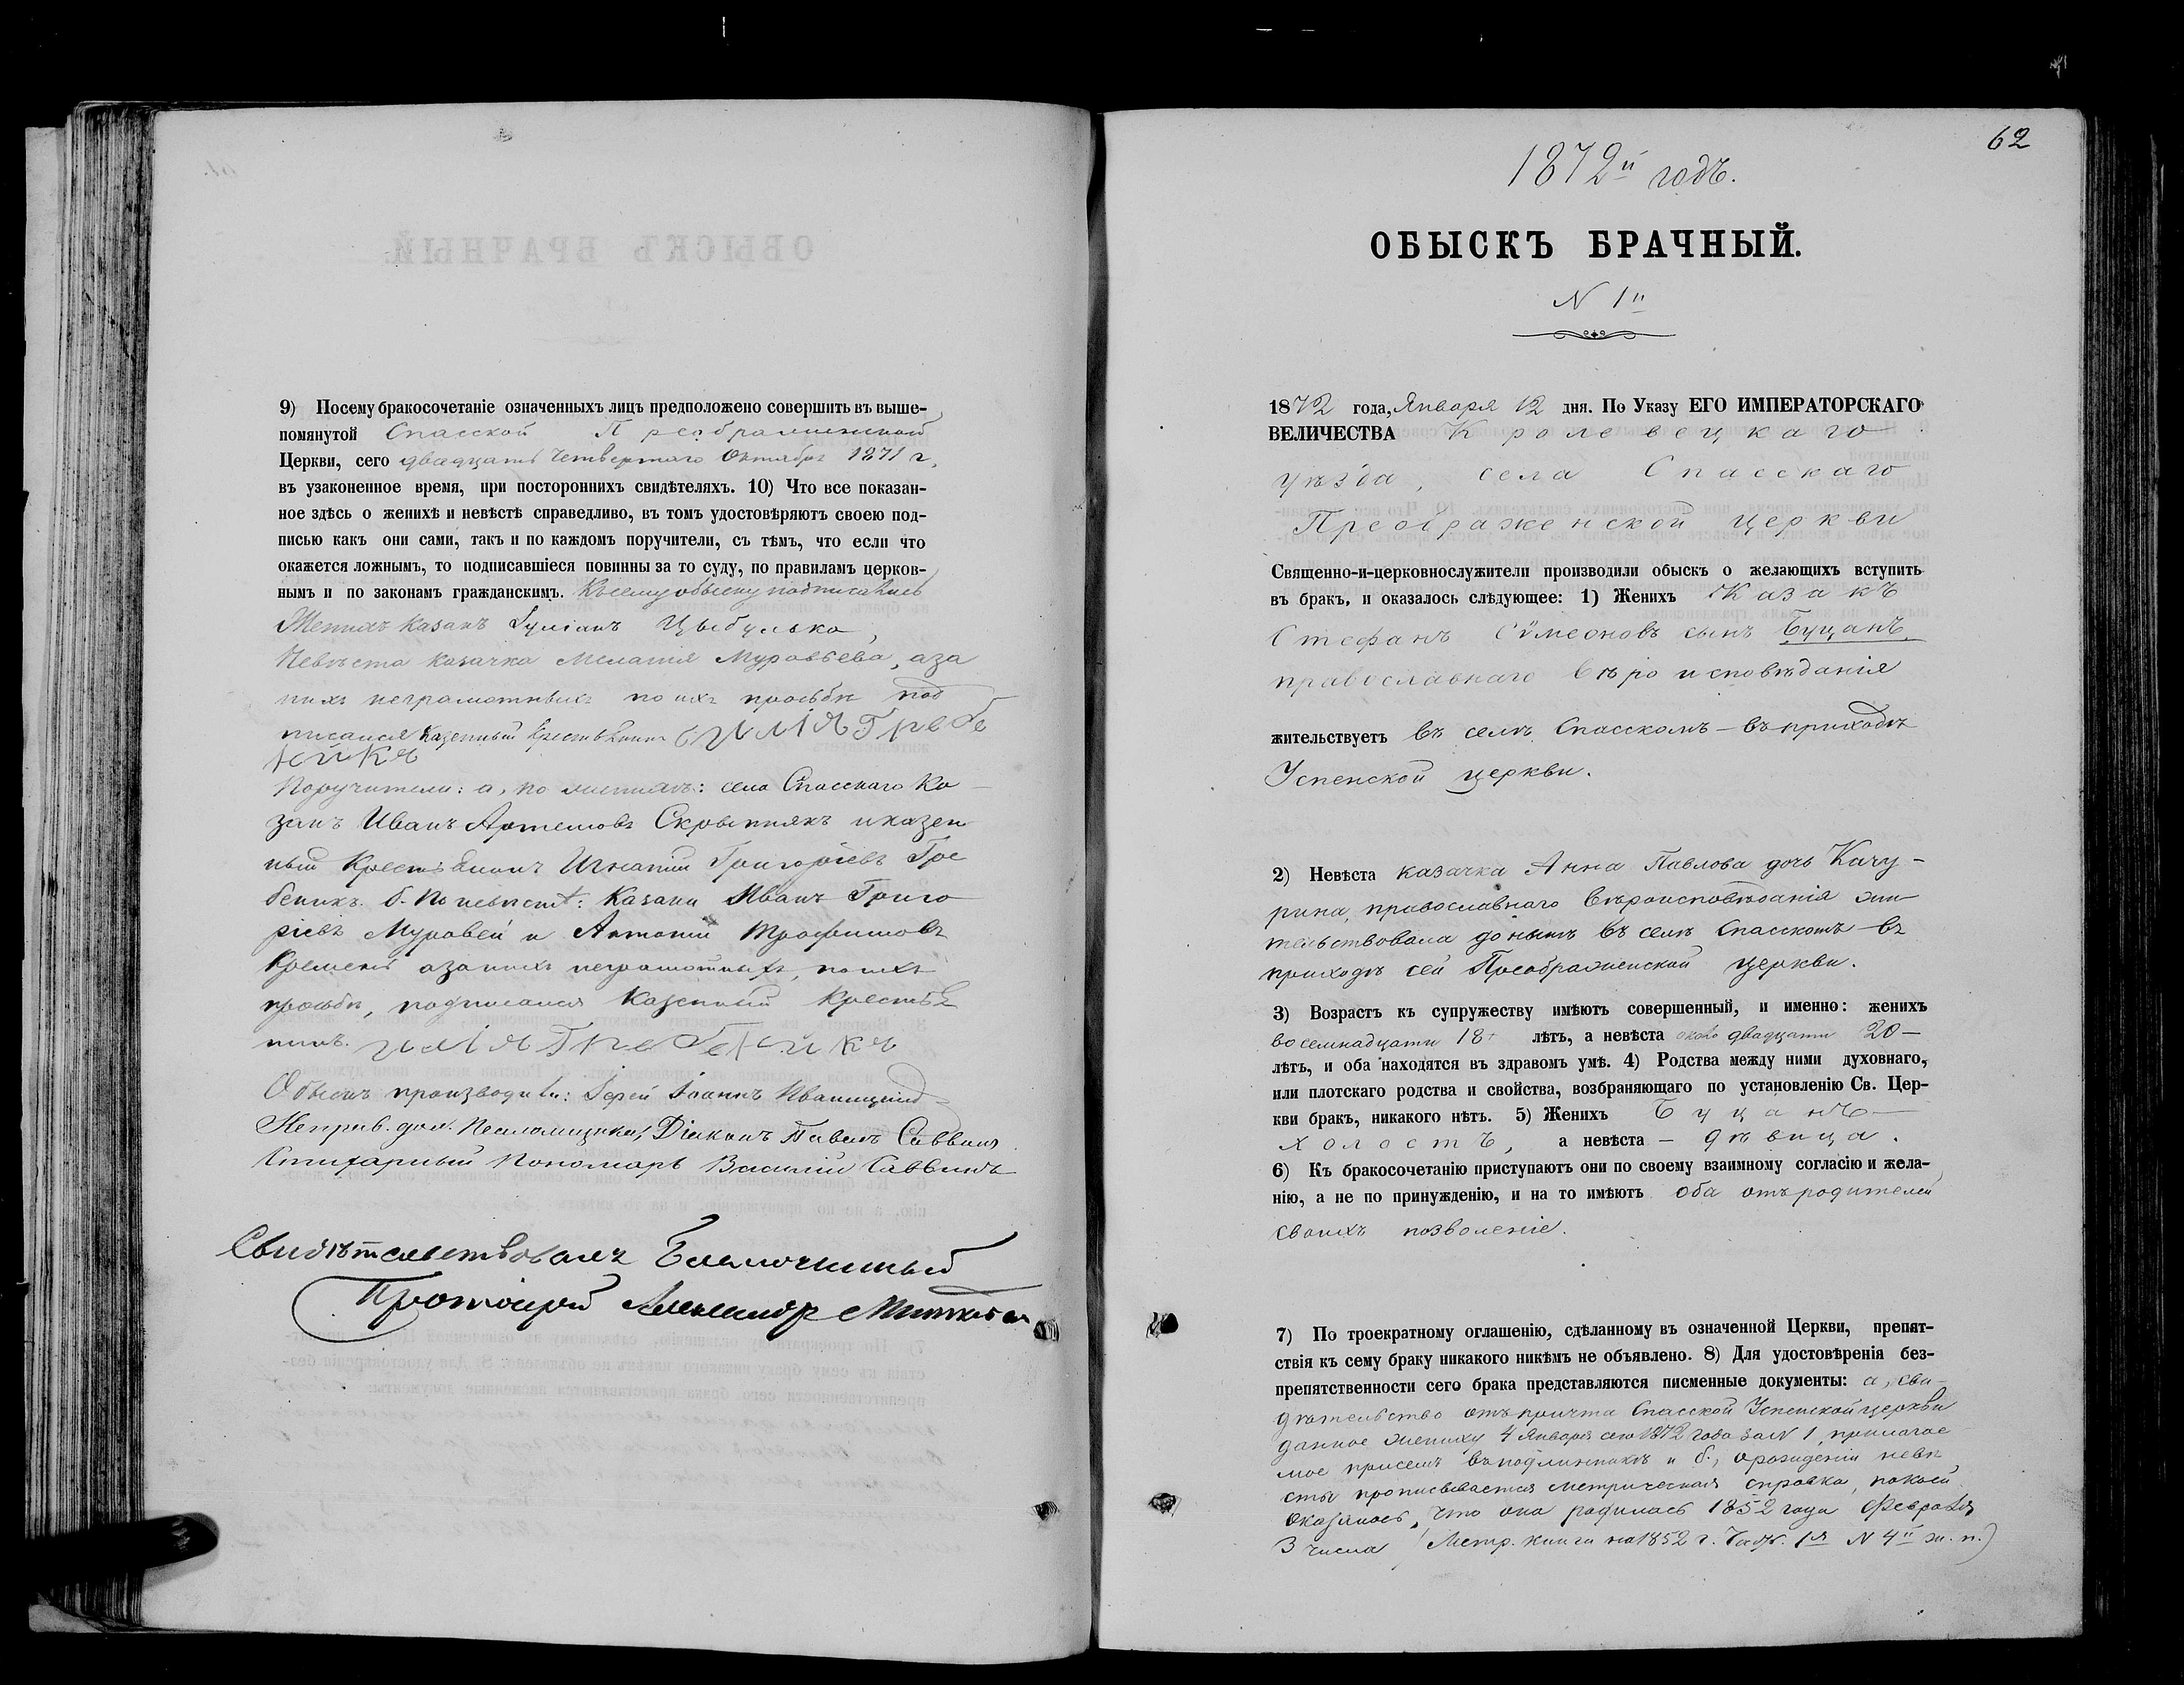 9) Посему бракосочетаніе означенныхъ лицъ предположено совершить въ выше-
помянутой Спасской Преображенской
Церкви, сего двадцать четвертаго Октября 1871 г.
въ узаконенное время, при постороннихъ свидѣтеляхъ. 10) Что все показан-
ное здѣсь о женихѣ и невѣстѣ справедливо, въ томъ удостовѣряютъ своею под-
писью какъ они сами, такъ и по каждомъ поручители, съ тѣмъ, что если что
окажется ложнымъ, то подписавшіеся повинны за то суду, по правиламъ церков-
нымъ и по законамъ гражданскимъ. Къ сему обыску подписались
Женихъ казакъ Цыбулько,
Невѣста казачка Мелатія Муравьева, а за
нихъ неграмотныхъ по ихъ просьбѣ под
писался казенный крестьянинъ
Поручители: а, по женихѣ: села Спасскаго Ка-
закъ Иванъ Артемовъ Скрыпнякъ и казен
ный крестьянинъ Игнатій Григоріевъ Гре
беникъ. б. По невѣстѣ: казаки Иванъ Григо
ріевъ Муравей и Антоній Трофимовъ
Кремень а за нихъ неграмотныхъ, по ихъ
просьбѣ, подписался казенный крестья
нинъ.
Обыскъ производили: Іерей Іоаннъ
Псаломщика, Діаконъ Павелъ Саввинъ
Стихарный Пономарь Василій Саввинъ
Свидѣтельствовалъ Благочинный
Протоіерей Александр
62
1872й годъ.
ОБЫСКЪ БРАЧНЫЙ.
N 1й
1872 года, Января 12 дня. По Указу ЕГО ИМПЕРАТОРСКАГО
ВЕЛИЧЕСТВА Кролевецкаго
уѣзда, села Спасскаго
Преображенской церкви
Священно-и-церковнослужители производили обыскъ о желающихъ вступить
въ бракъ, и оказалось слѣдующее: 1) Женихъ Казакъ
Стефанъ Сѵмеоновъ сынъ Буцанъ
православнаго вѣроисповѣданія
жительствуетъ въ селѣ Спасскомъ – въ приходѣ
Успенской церкви.
2) Невѣста казачка Анна Павлова дочь Качу-
рина, православнаго вѣроисповѣданія жи
тельствовала донынѣ въ селѣ Спасскомъ – въ
приходѣ сей Преображенской церкви.
3) Возрастъ къ супружеству имѣютъ совершенный, и именно: женихъ
восемнадцати 18 лѣтъ, а невѣста около двадцати 20 –
лѣтъ, и оба находятся въ здравомъ умѣ. 4) Родства между ними духовнаго,
или плотскаго родства и свойства, возбраняющаго по установленію Св. Цер-
кви бракъ, никакого нѣтъ. 5) Женихъ Буцанъ –
холостъ, а невѣста – дѣвица.
6) Къ бракосочетанію приступаютъ они по своему взаимному согласію и жела-
нію, а не по принужденію, и на то имѣютъ оба отъ родителей
своихъ позволеніе.
7) По троекратному оглашенію, сдѣланному въ означенной Церкви, препят-
ствія къ сему браку никакого никѣмъ не объявлено. 8) Для удостовѣренія без-
препятственности сего брака представляются писменные документы: а, сви-
дѣтельство отъ причта Спасской Успенской церкви
данное жениху 4 Января сего 1872 года за N 1, прилагае
мое при семъ въ подлинникѣ и б., о рожденіи невѣ
сты прописывается метрическая справка, по коей
оказалось, что она родилась 1852 года Февраля
3 числа (Метр. книги на 1852 г. 1я N 4й ж. п.)